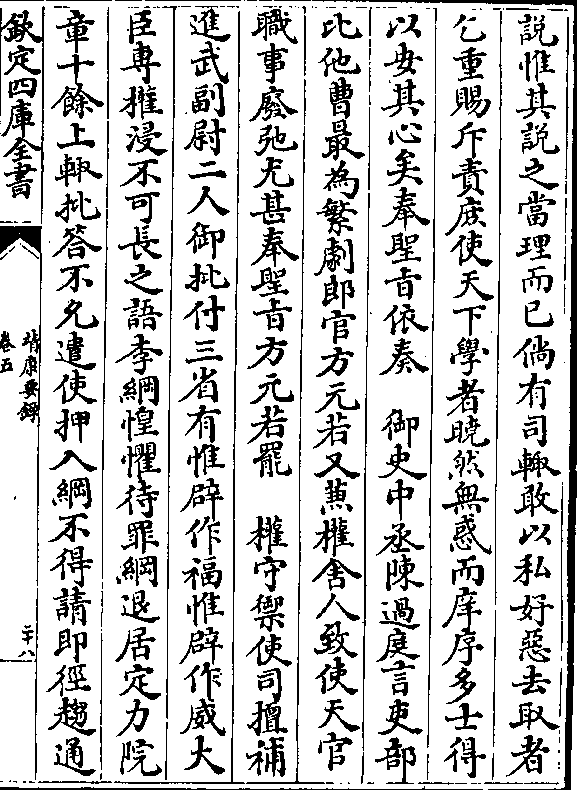 說惟其說之當理而已倘有司輙敢以私好惡去取者
乞重賜斥責庶使天下學者曉然無惑而庠序多士得
以安其心矣奉聖旨依奏　御史中丞陳過庭言吏部
比他曹最為繁劇郎官方元若又蒹權舍人致使天官
職事廢弛尤甚奉聖旨方元若罷　權守禦使司擅補
進武副尉二人御批付三省有惟辟作福惟辟作威大
臣專權浸不可長之語李綱惶懼待罪綱退居定力院
章十餘上輙批答不允遣使押入綱不得請即徑趨通
欽定四庫全書
靖康要錄
卷五
二十八